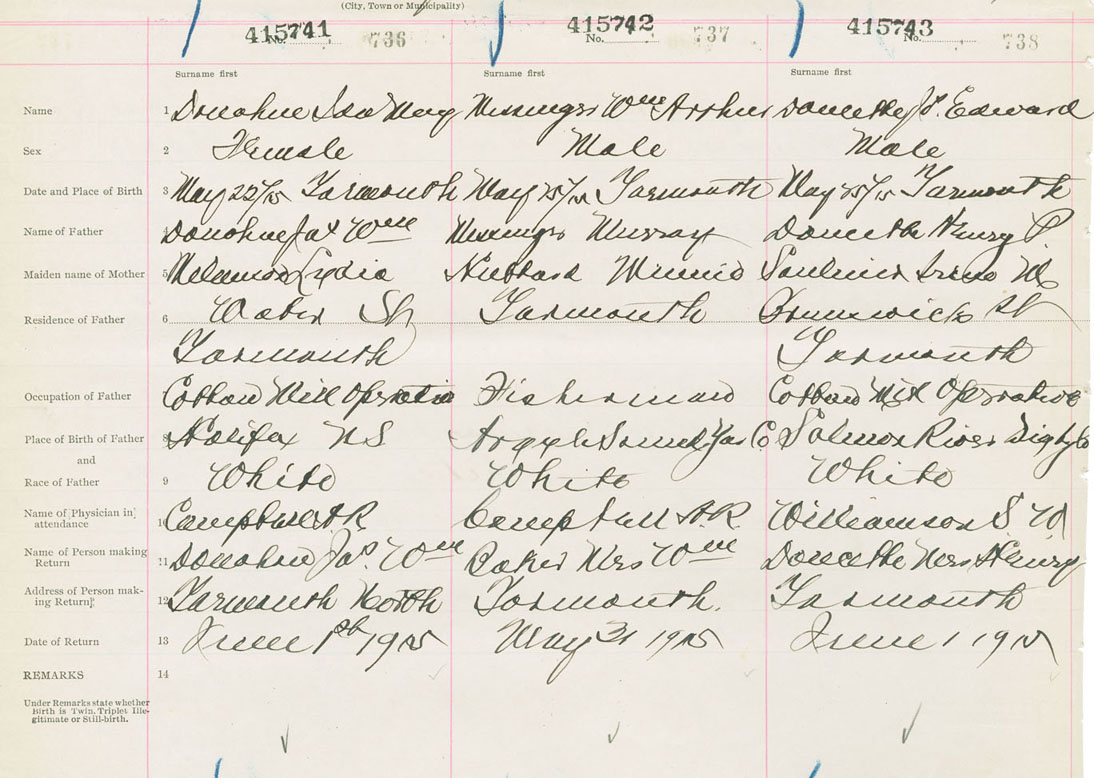 (City, Town or Municipality)
415741 415742 415743
No. 736 No. 737 No. 738
Surname first Surname first Surname first
Name 1 Donohue Ida May Wm Arthur Doucette Js. Edward
Sex 2 Female Male Male
Date and Place of Birth 3 May 22/15 Yarmouth May 25/15 Yarmouth May 25/15 Yarmouth
Name of Father Donohue Jas Wm Murray Doucette Henry P.
Maiden name of Mother 5 Lydia Hubbard Winnie Saulnier Irene M
Residence of Father 6 Water St Yarmouth Brunswick St
Yarmouth Yarmouth
Occupation of Father Cotton Mill Operative Fisherman Cotton Mill Operative
Place of Birth of Father 8 Halifax NS Argyle Sound Yar Co Salmon River Digby Co
and
Race of Father 9 White White White
Name of Physician in attendance 10 Campbell A R Campbell A. R. Williamson S W
Name of Person making Return 11 Donohue Jas. Wm Baker Mrs Wm Doucette Mrs Henry
Address of Person making Return 12 Yarmouth North Yarmouth. Yarmouth
Date of Return 13 June 1st 1915 May 31 1915 June 1 1915
REMARKS 14
Under Remarks state whether
Birth is Twin, Triplet Ille-
gitimate or Still-birth.